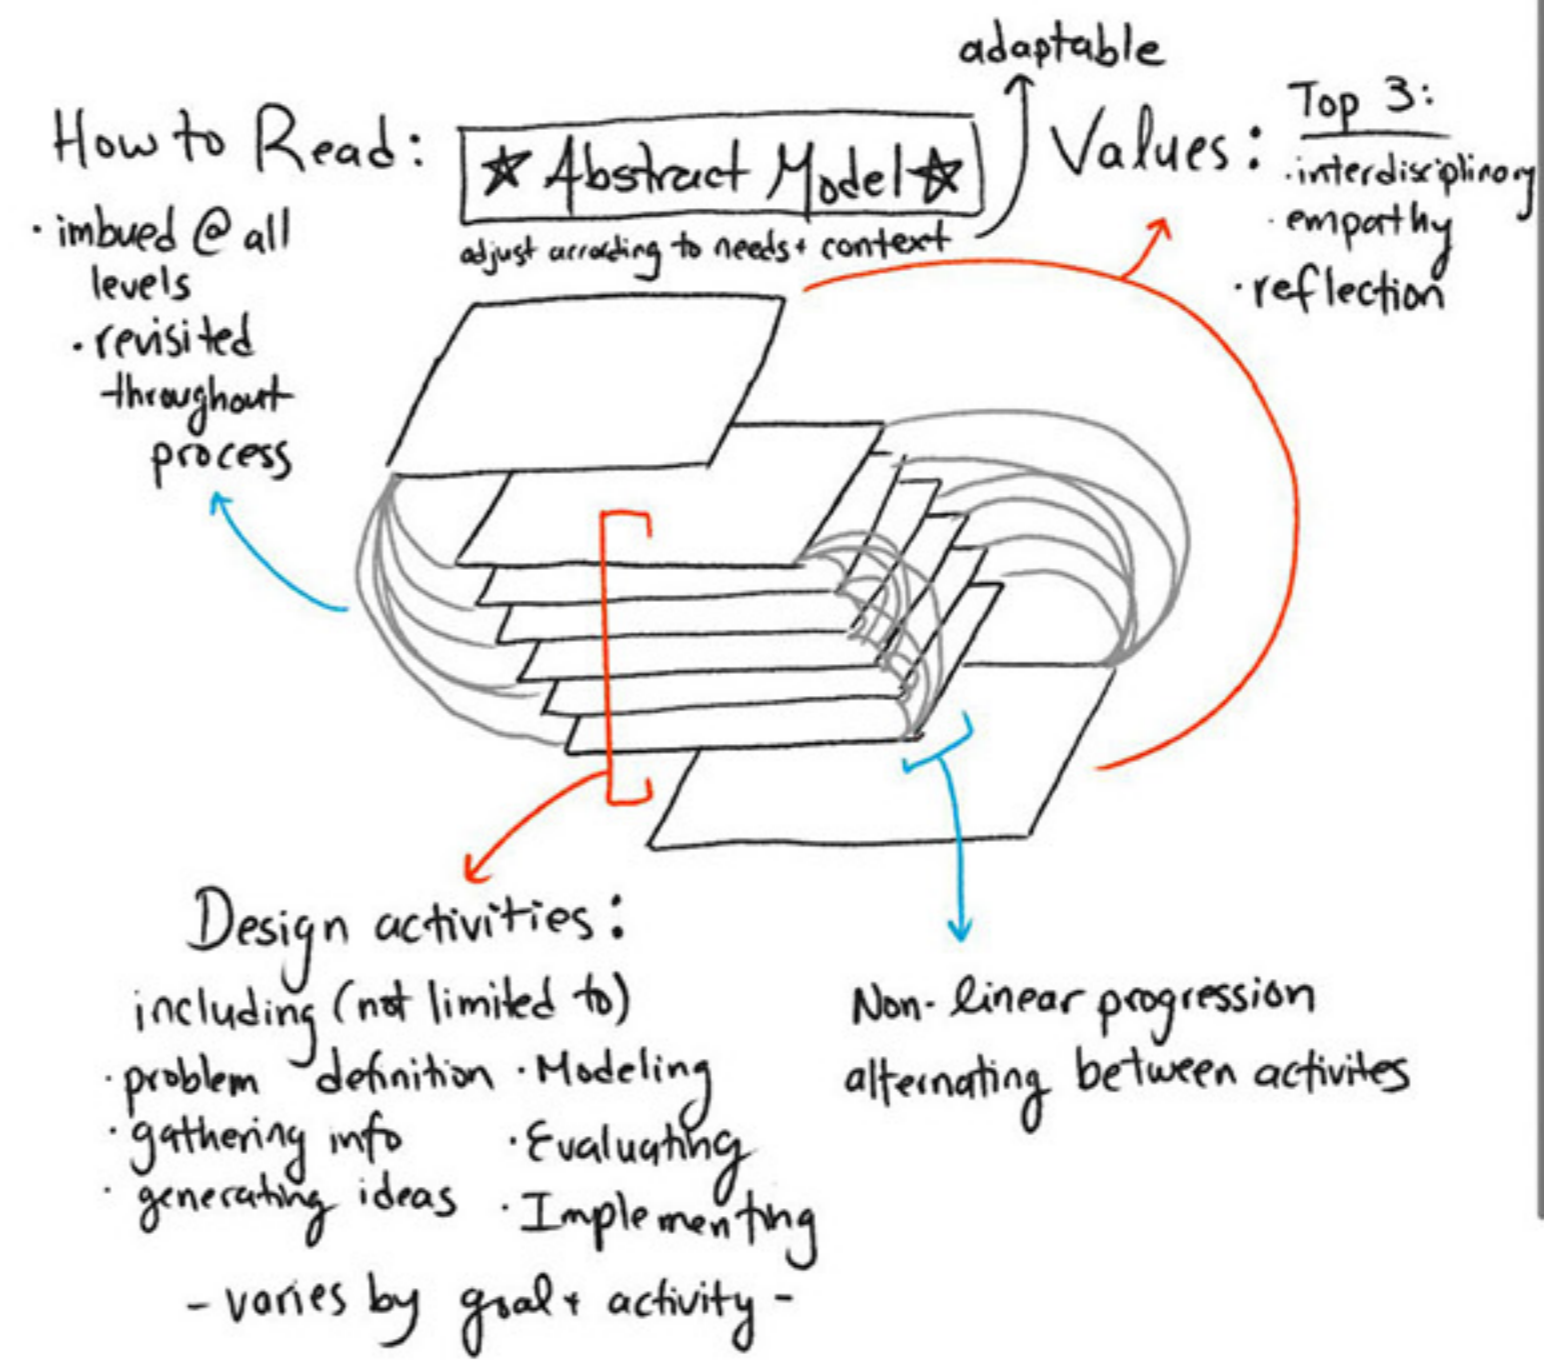 adaptable
How to Read:
☆ Abstract Model ☆
adjust according to needs + context
· imbued @ all
levels
· revisited
throughout
process
Values:
Top 3:
· interdisciplinary
· empathy
· reflection
Design activities:
including (not limited to)
· problem definition
· gathering info
· generating ideas
· Modeling
· Evaluating
· Implementing
- varies by goal + activity -
Non-linear progression
alternating between activites